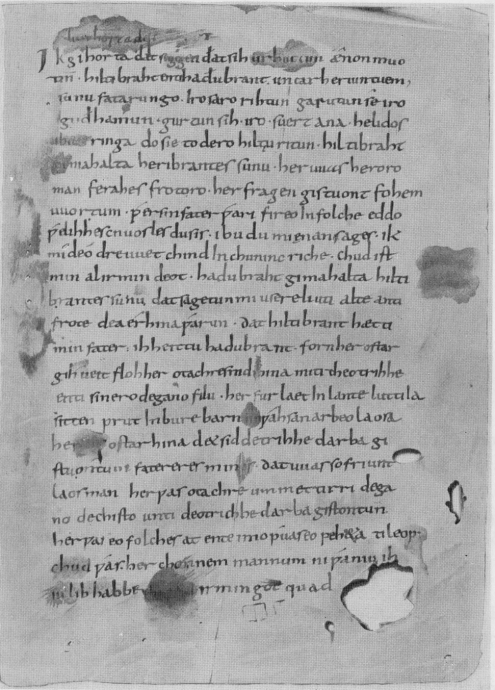 Ik gihorta dat seggen dat sih urhettun ænon muo
tin · hiltibraht enti hadubrant · untar heriun tuem,
sunu fatarungo · iro saro rihtun garutun se iro
gudhamun · gurtun sih · iro · suert ana · helidos
ubar ringa do sie to dero hiltu ritun · hiltibraht
gimahalta heribrantes sunu · her uuas heroro
man ferahes frotoro · her fragen gistuont fohem
uuortum · ƿer sin fater ƿari fireo In folche eddo
ƿelihhes cnuosles du sis · ibu du mi enan sages · ik
mideo dre uuet chind In chunincriche · chud ist
min al irmin deot · hadubraht gimahalta hilti
brantes sunu dat sagetun mi usere liuti alte anti
frote dea erhina ƿarun · dat hiltibrant hætti
min fater · ih heittu hadubrant · forn her ostar
gihueit floh her otachres nid hina miti theotrihhe
enti sinero degano filu · her furlaet In lante luttila
sitten prut In bure barn unƿahsan arbeo laosa
her ostar hina det sid detrihhe darba gi
stuontum fatereres mines · dat uuas so friunt
laos man her ƿas otachre ummettirri dega
no dechisto unti deotrichhe darba gistontun
her ƿas eo folches at ente imo ƿuas eo peh&a ti leop ·
chud ƿas · her chonnem mannum ni ƿaniu ih
iu lib habbe irmingot quad